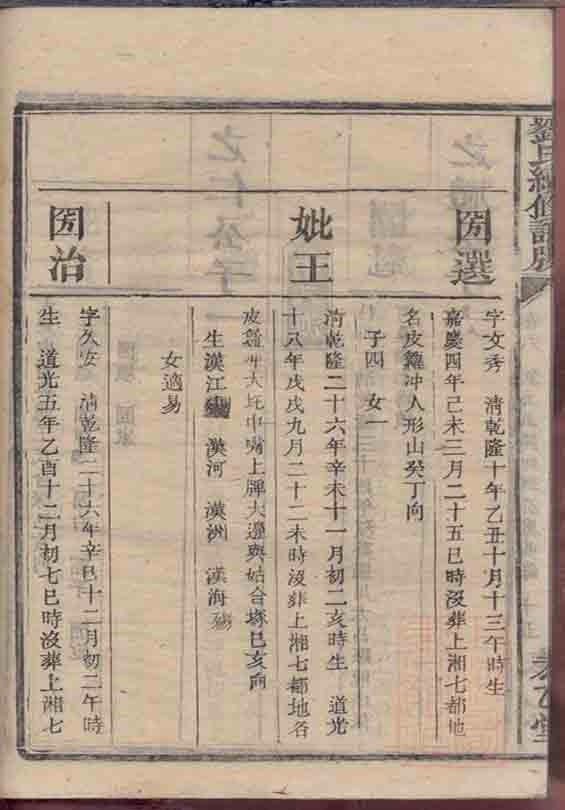 劉氏續修譜牒
𠁅乙堂
國選
字文秀　清乾隆十年乙丑十月十三午時生
嘉慶四年己未三月二十五巳時沒葬上湘七都地
名皮籮冲人形山癸丁向
子四　女一
妣王
清乾隆二十六年辛未十一月初二亥時生　道光
十八年戊戌九月二十二未時沒葬上湘七都地名
皮籮冲大坵中嘴上牌大邊與姑合塚巳亥向
生漢江　漢河　漢洲　漢海
女適易
國治
字久安　清乾隆二十六年辛巳十二月初二午時
生　道光五年乙酉十二月初七巳時沒葬上湘七